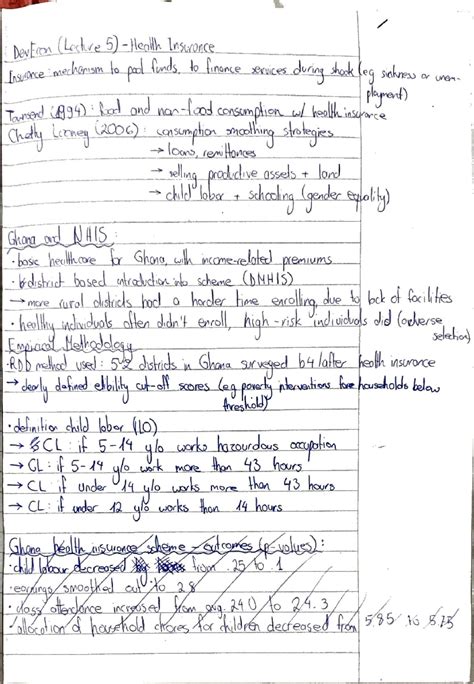 DevEcon (Lecture 5) - Health Insurance
Insurance: mechanism to pool funds, to finance services during shock (eg sickness or unem-
ployment)
Townsend (1994): food and non-food consumption w/ health insurance
Chetty Looney (2006): consumption smoothing strategies
→ loans, remittances
→ selling productive assets + land
→ child labor + schooling (gender equality)
Ghana and NHIS:
· basic healthcare for Ghana, with income-related premiums
· district based introduction into scheme (DMHIS)
→ more rural districts had a harder time enrolling, due to lack of facilities
· healthy individuals often didn't enroll, high-risk individuals did (adverse
selection)
Empirical Methodology
· RDD method used: 52 districts in Ghana surveyed b4/after health insurance
→ clearly defined elibility cut-off scores (eg poverty interventions for households below
threshold)
· definition child labor (ILO)
→ CL: if 5-14 y/o works hazourdous occupation
→ CL: if 5-14 y/o work more than 43 hours
→ CL: if under 14 y/o works more than 43 hours
→ CL: if under 12 y/o works than 14 hours
Ghana health insurance scheme - outcomes (p-values):
· child labour decreased from .25 to .1
· earnings smoothed out to 28
· class attendance increased from avg. 24.0 to 24.3
· allocation of household chores for children decreased from 5.85 to 5.75